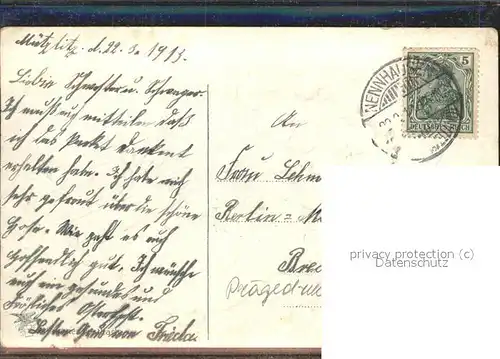 Mützlitz. d. 22. 3. 1913.
Liebe Schwester u. Schwager.
Ich muß euch mitteilen daß
ich das Paket dankent
erhalten habe. Ich habe mich
sehr gefreut über die schöne
Hose. Wie geht es euch
hoffendlich gut. Ich wünsche
euch ein gesundes und
fröhliches Osterfest.
Besten Gruß von
An
Frau Lehm
Berlin=
Prägedruk
NENNHAUSEN
5
DEUTSCHES REICH
privacy protection (c)
Datenschutz